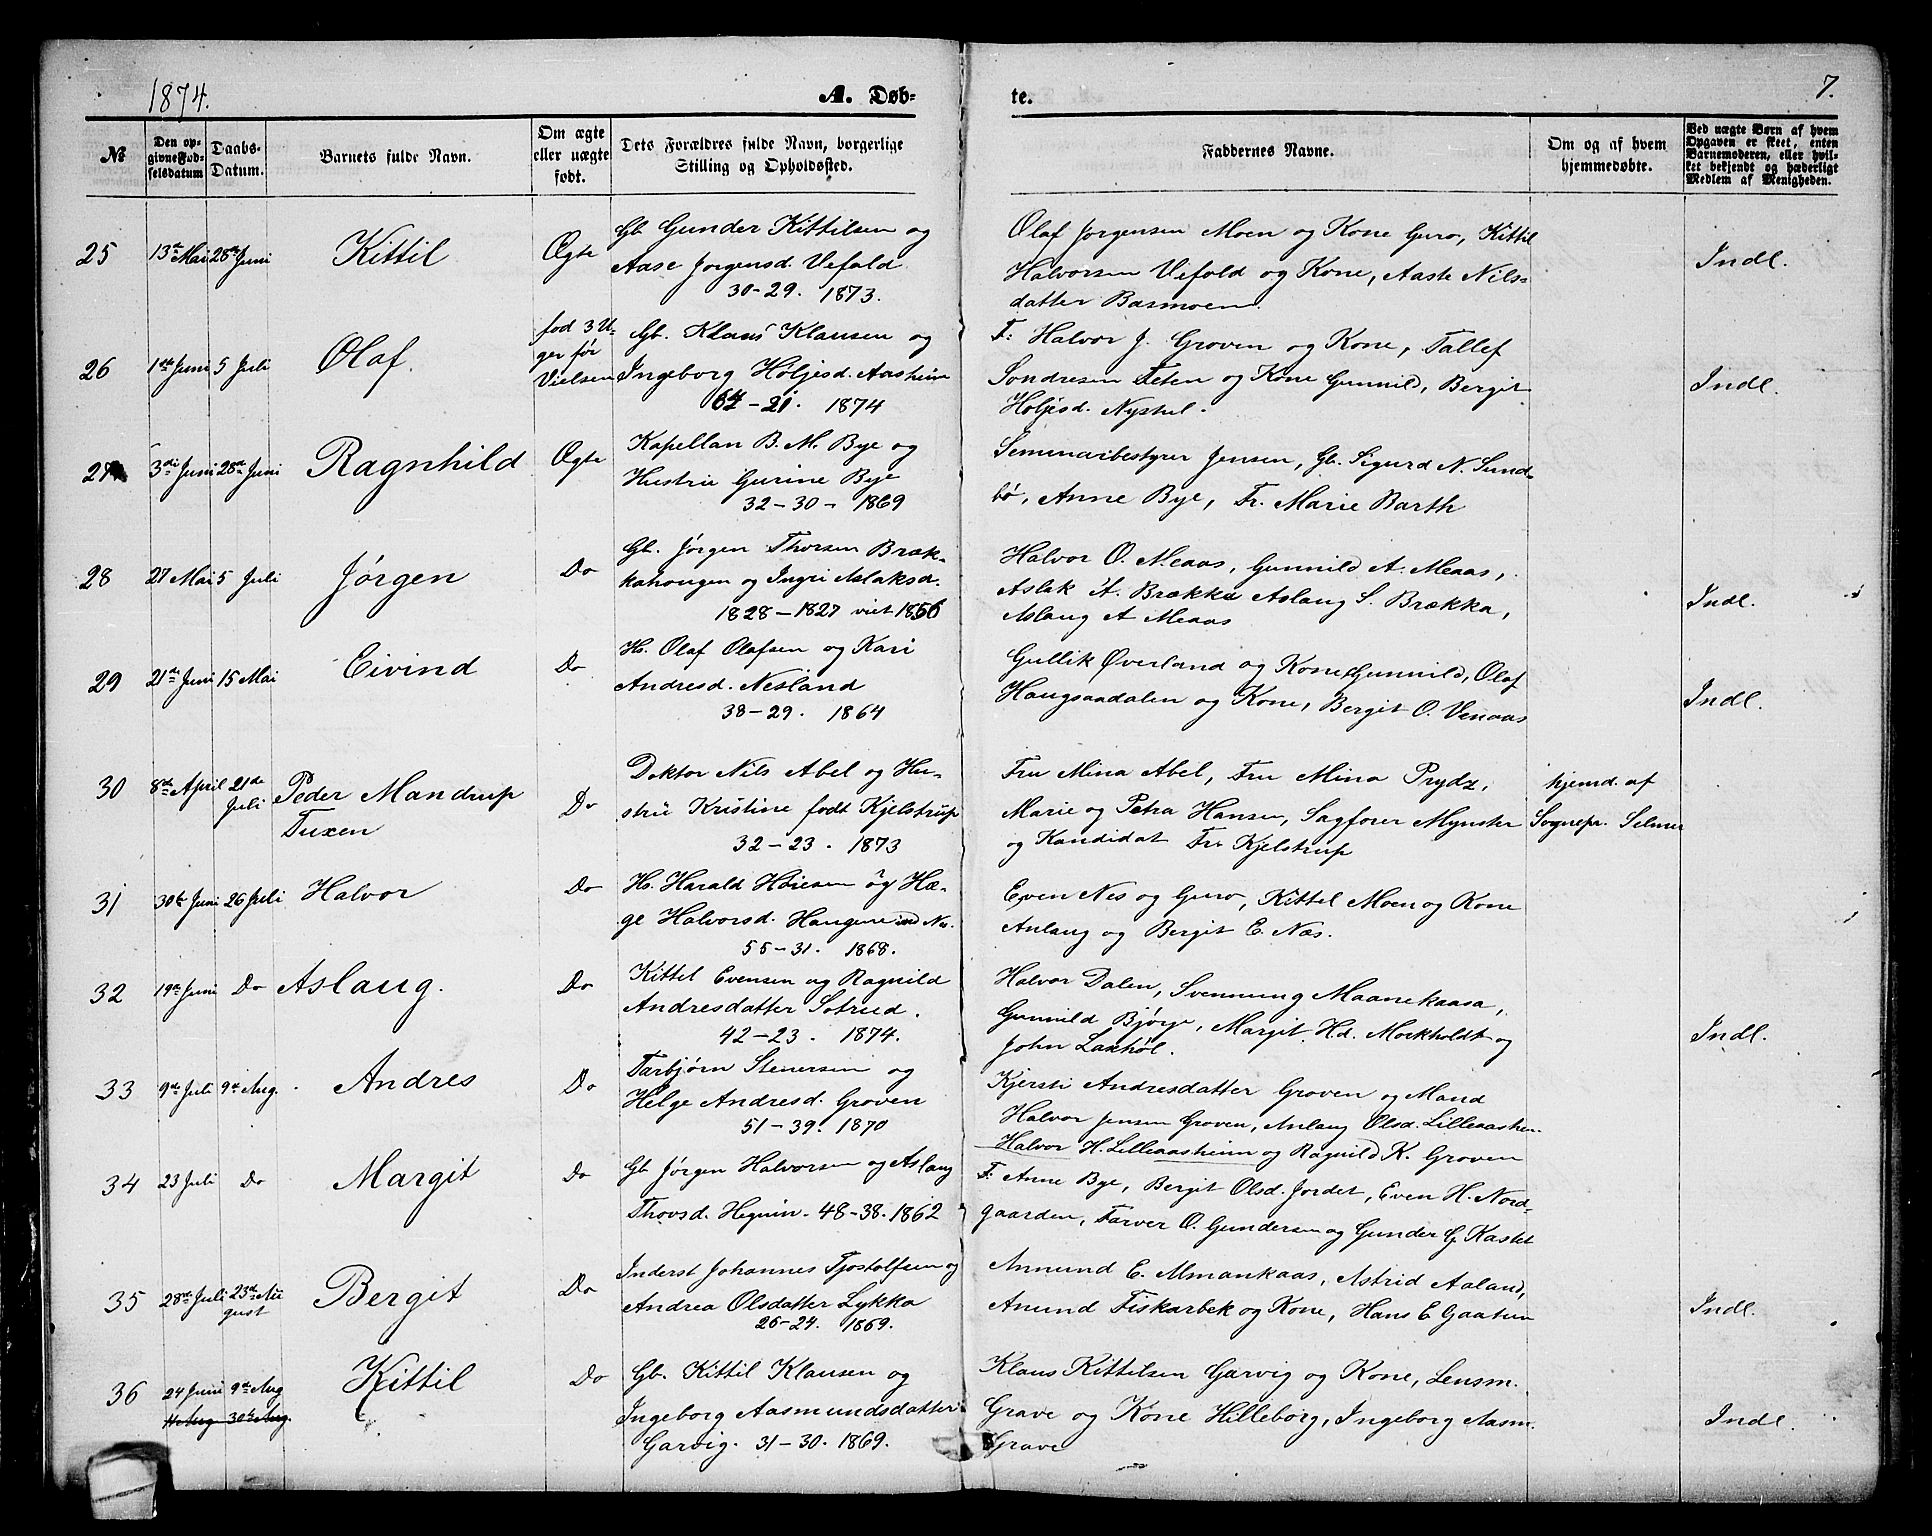 1874.
A. Døb-
te.
7.
№
Den op-
givne Fød-
selsdatum
Daabs-
Datum.
Barnets fulde Navn.
Om ægte
eller uægte
født.
Dets Forældres fulde Navn, borgerlige
Stilling og Opholdssted.
Faddernes Navne.
Om og af hvem
hjemmedøbte.
Ved uægte Børn af hvem
Opgaven er skeet, enten
Barnemoderen, eller hvil-
ket bekjendt og hæderligt
Medlem af Menigheden.
25 13de Mai 28de Juni Kittil Ægte
Gb. Gunder Kittilsen og
Aase Jørgensd. Vefald.
30-29. 1873.
Olaf Jørgensen Moen og Kone Guro, Kittil
Halvorsen Vefald og Kone, Aaste Nils-
datter Basmoen.
Indl.
26 1ste Juni 5 Juli Olaf.
fød 3 U-
ger før
Vielsen
Gb. Klaus Klausen og
Ingeborg Holjesd. Aasheim
64-21. 1874
F: Halvor J. Groven og Kone, Tallef
Sondresen Teten og Kone Gunnild, Bergit
Holjesd. Nystul.
Indl.
27 3die Juni 28de Juni Ragnhild Ægte
Kapellan B. M. Bye og
Hustru Gurine Bye
32-30- 1869
Seminarbestyrer Jensen, Gb. Sigurd N. Sund-
bø, Anne Bye, Fr. Marie Barth
28 27 Mai 5 Juli Jørgen Do
Gb. Jørgen Thorsen Bræk-
kahougen og Ingri Aslaksd.
1828-1827 viet 1856
Halvor O. Meaas, Gunnild A. Meaas,
Aslak A. Brække Aslaug S. Brækka,
Aslaug A Meaas
Indl.
29 21de Juni 15 Mai Eivind Do
H. Olaf Olafsen og Kari
Andresd. Nesland
38-29. 1864
Gullik Øverland og Kone Gunnild, Olaf
Haugsaadalen og Kone, Bergit O. Venaas
Indl.
30 8de April 21de
Juli
Peder Mandrup
Tuxen
Do
Doktor Nils Abel og Hu-
stru Kristine født Kjelstrup
32-23. 1873
Fru Mina Abel, Fru Mina Prydz,
Marie og Petra Hansen, Sagfører Mynster
og Kandidat Fr. Kjelstrup
hjemd. af
Sognepr. Selmer
31 30te Juni 26 Juli Halvor Do
H. Harald Høiesen og Hæ-
ge Halvorsd. Haugene
55-31. 1868.
Even Nes og Guro, Kittel Moen og Kone
Anlaug og Bergit E. Næs.
32 19de Juni Do Aslaug. Do
Kittel Evensen og Ragnild
Andresdatter Sotrud.
42-23. 1874.
Halvor Dalen, Svennung Maanekaasa,
Gunnild Bjørge, Margit Hd. Mockholdt og
John Laxhøl.
Indl.
33 9de Juli 9de Aug. Andres Do
Tarbjørn Stenersen og
Helge Andresd. Groven
51-39. 1870
Kjersti Andresdatter Groven og Mand
Halvor Jensen Groven, Anlaug Olsd. Lilleaashei-
Halvor H. Lilleaasheim og Ragnild K. Groven
34 23 Juli Do Margit Do
Gb. Jørgen Halvorsen og Aslaug
Thovsd. Heguin. 48-38. 1862
F. Anne Bye, Bergit Olsd. Jordet, Even H. Nord-
gaarden, Tarver O. Gundersen og Gunder G Kastet
35 28de Juli 23de Au
gust
Bergit Do
Inderst Johannes Tjostolfsen og
Andrea Olsdatter Lykka
26-24. 1869.
Annund E. Mmankaas, Astrid Aaland,
Anund Fiskarbek og Kone, Hans E Gaatun
Indl.
36 24 Juni 9de Aug
11 Aug 30te Aug.
Kittil Do
Gb. Kittil Klausen og
Ingeborg Aasmundsdatter
Garvig. 31-30. 1869.
Klaus Kittilsen Garvig og Kone, Lensm.
Grave og Kone Hilleborg, Ingeborg Aasm.
Grave
Indl.